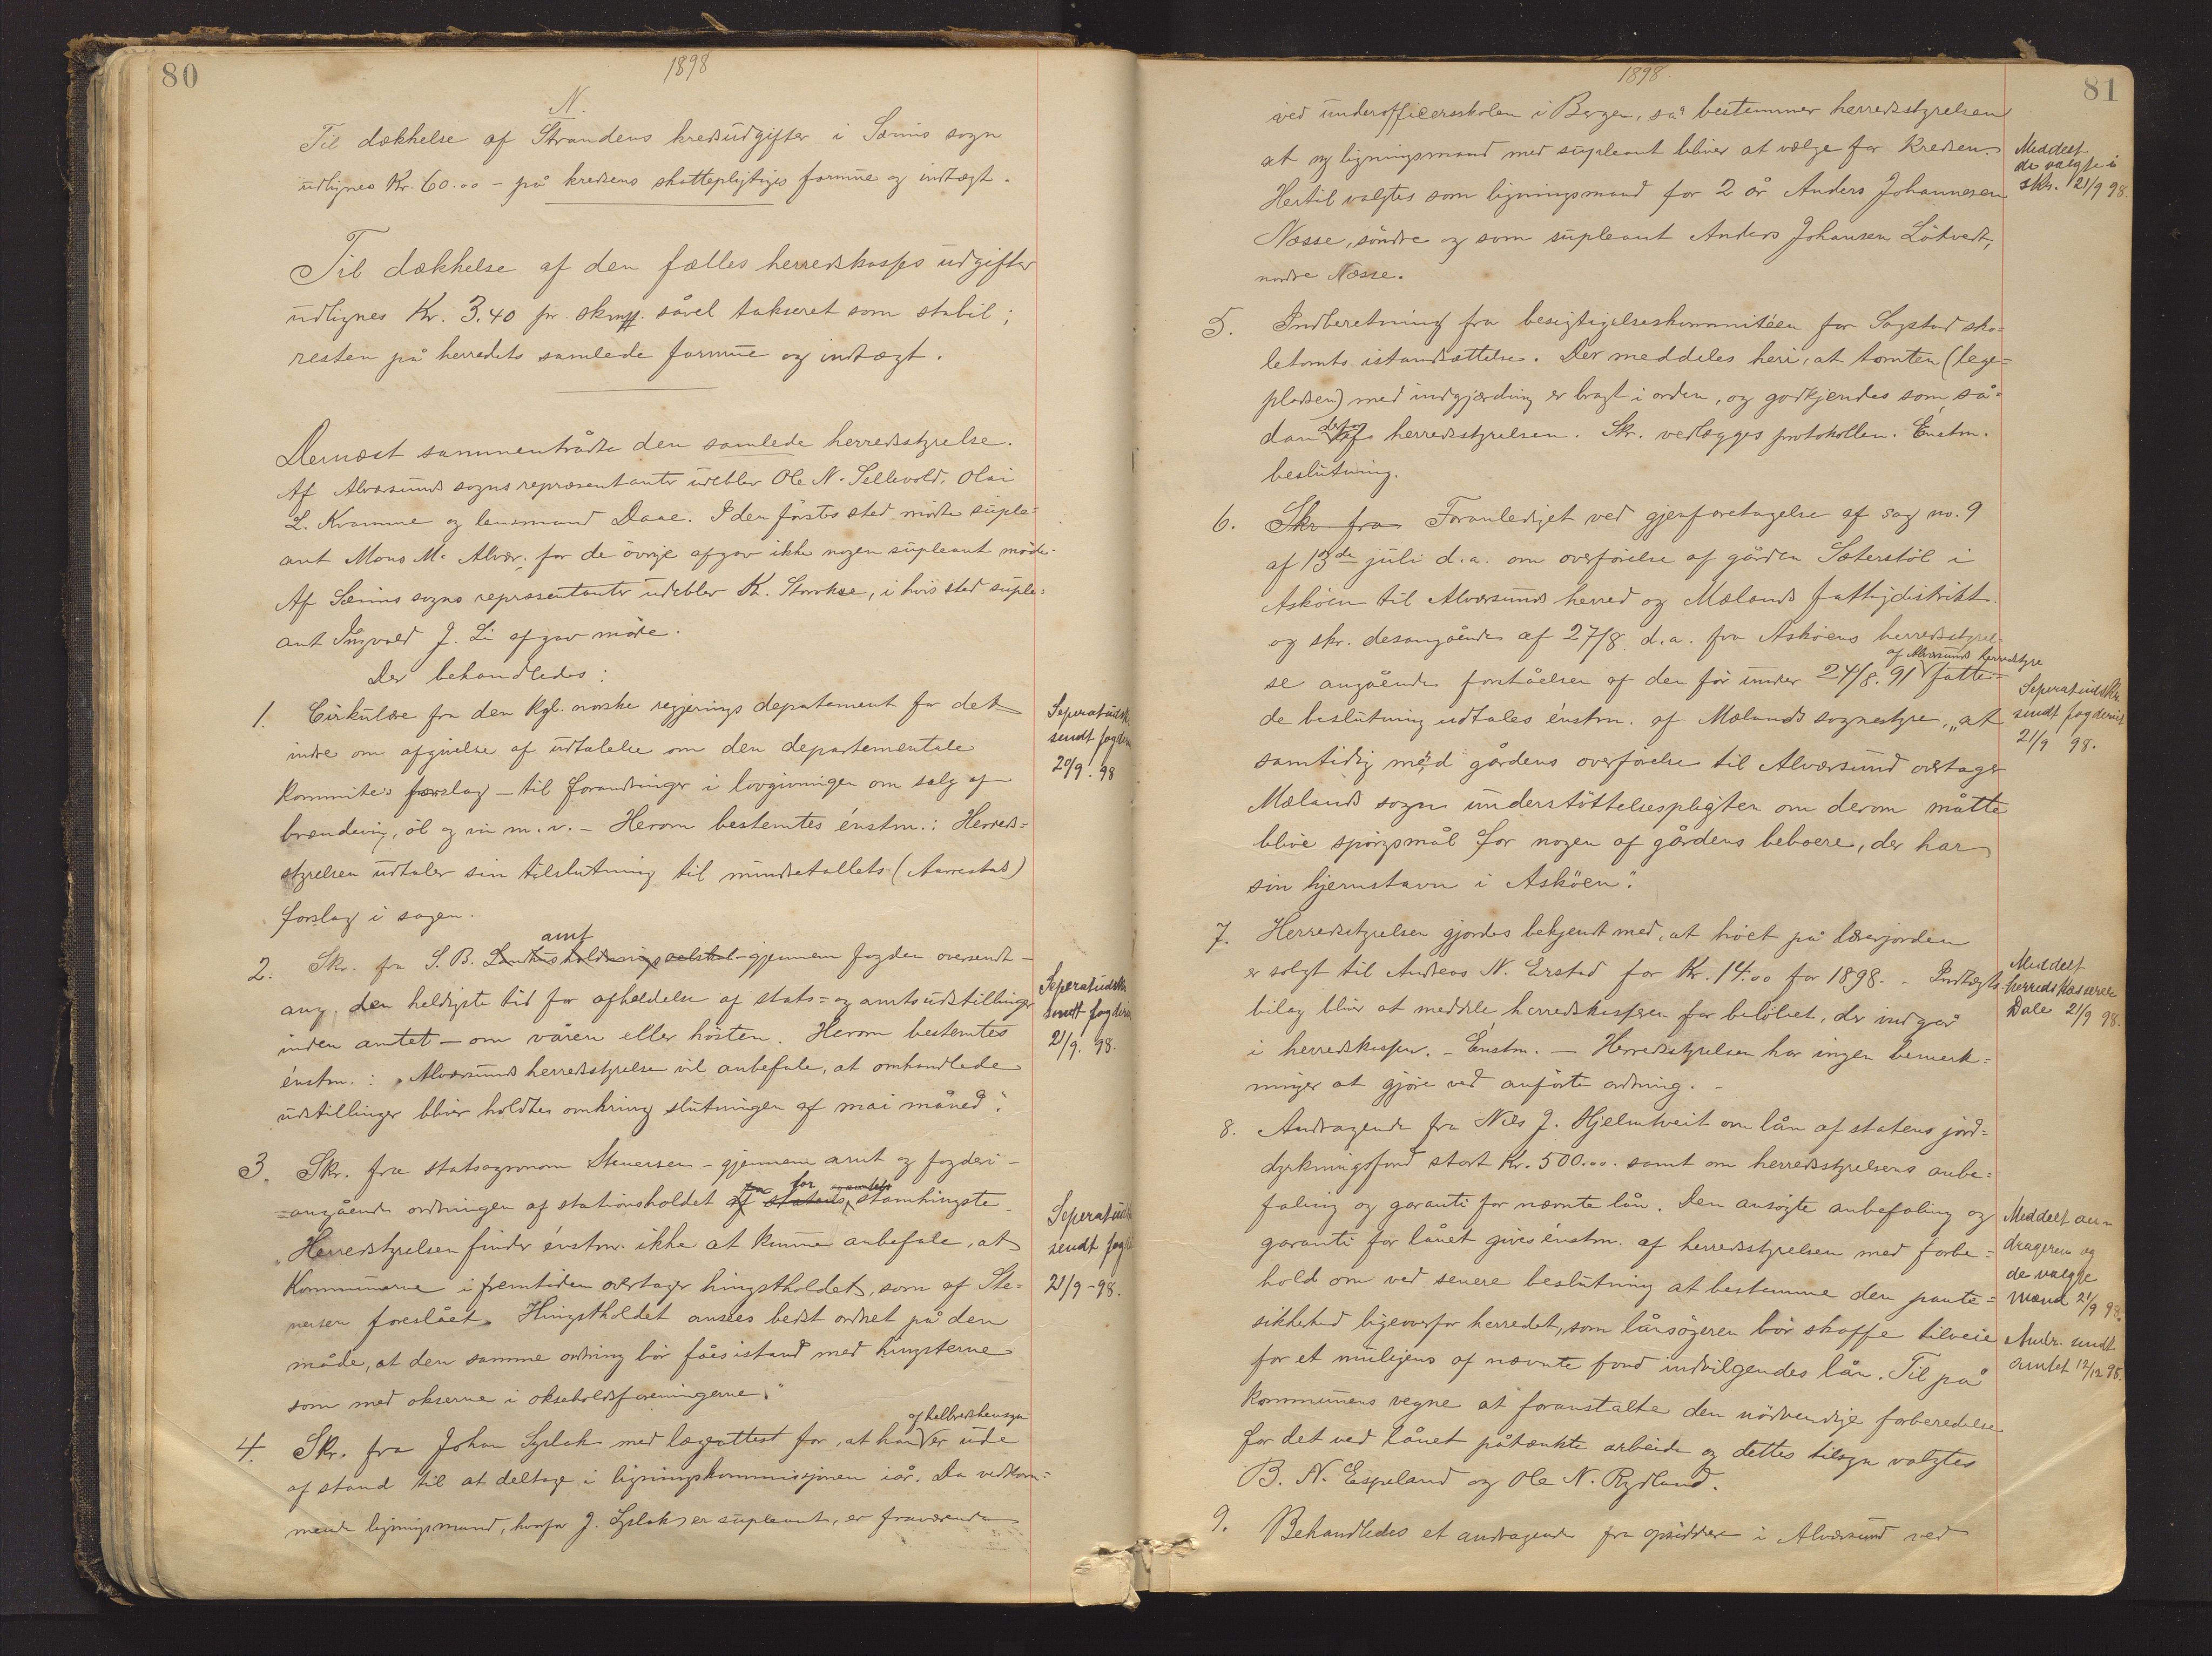 80
1898
N.
Til dækkelse af Strandens kredsudgifter i Sæims sogn
udlignes Kr. 60.00 - på kredsens skattepligtiges formue og indtægt.
Til dækkelse af den fælles herredskasses udgifter
udlignes Kr. 3.40 pr. skm såvel takseret som stabil;
resten på herredets samlede formue og indtægt.
Dernæst sammentrådte den samlede herredsstyrelse.
Af Alversunds sogns repræsentanter udeblev Ole N. Sellevold, Olai
L. Kvamme og lensmand Daae. I den førstes sted mødte suple=
ant Mons M. Alver; for de övrige afgav ikke nogen supleant møde.
Af Sæims sogns repræsentanter udeblev K. Storkse, i hvis sted suple=
ant Ingvald J. Li afgav möde.
Der behandledes:
1. Cirkulære fra den kgl. norske regjerings departement for det
indre om afgivelse af udtalelse om den departementale
kommités forslag - til forandringer i lovgivningen om salg af
brændeviin, öl og vin m.v. - Herom bestemtes énstm.: Herreds=
styrelsen udtaler sin tilslutning til mindretallets (Aarrestads)
forslag i sagen.
Seperatudsk.
sendt fogden
20/9. 98
amt
2. Skr. fra S. B. Landhusholdningsselskab - gjennem fogden oversendt -
ang. den heldigste tid for afholdelse af stats= og amtsudstillinger
inden amtet - om våren eller hösten. Herom bestemtes
énstm.: "Alversunds herredsstyrelse vil anbefale, at omhandlede
udstillinger bliver holdtes omkring slutningen af mai måned".
Seperatudskr.
sendt fogderiet
21/9. 98.
3. Skr. fra statsagronom Stenersen - gjennem amt og fogderi -
for og amtets
=angående ordningen af stationsholdet af statens stamhingste.
"Herredsstyrelsen finder énstm. ikke at kunne anbefale, at
Kommunerne i fremtiden overtager hingstholdet, som af Ste=
nersen foreslået. Hingstholdet ansees bedst ordnet på den
måde, at den samme ordning bör fåes istand med hingsterne
som med okserne i okseholdsforeningerne."
Seperatudsk
sendt fogd
21/9 - 98.
af helbredshensyn
4. Skr. fra Johan Syslak med lægeattest for, at han er ude
af stand til at deltage i ligningskommissionen iår. Da vedkom=
mende ligningsmand, hvorfor J. Syslak er supleant, er fraværende
1898.
81
ved underofficersskolen i Bergen, så bestemmer herredsstyrelsen
at ny ligningsmand med supleant bliver at vælge for Kredsen.
Hertil valgtes som ligningsmand for 2 år Anders Johannesen
Næsse, söndre og som supleant Anders Johansen Lötvedt,
nordre Næsse.
Meddelt
de valgte i
skr. 21/9 98.
5. Indberetning fra besigtigelseskommitéen for Sagstad sko=
letomts istandsættelse. Der meddeles heri, at tomten (lege=
pladsen) med indgjærding er bragt i orden, og godkjendes som så=
dan af herredsstyrelsen. Skr. vedlægges protokollen. Énstm.
beslutning.
6. Skr fra Foranlediget ved gjenforetagelse af sag no. 9
af 13de juli d.a. om overførelse af gården Sæterstöl i
Asköen til Alversunds herred og Mælands fattigdistrikt
og skr. desangående af 27/8. d.a. fra Asköens herredsstyrel=
af Alversunds herredstyre
se angående forståelsen af den för under 24/8. 91 fatte=
de beslutning udtales énstm. af Mælands sognestyre, "at
samtidig med gårdens overförelse til Alversund overtager
Mælands sogn understöttelsespligten om derom måtte
blive spörgsmål for nogen af gårdens beboere, der har
sin hjemstavn i Asköen".
Seperatudskr.
sendt fogderiet
21/9 98.
7. Herredsstyrelsen gjordes bekjendt med, at höet på lærerjorden
er solgt til Andreas N. Erstad for Kr. 14.00 for 1898. - Indtægts
bilag bliver at meddele herredskasseren for belöbet, der indgår
i herredskassen. - Énstm. - Herredsstyrelsen har ingen bemærk=
ninger at gjöre ved anförte ordning. -
Meddelt
herredskasserer
Dale 21/9 98.
8. Andragende fra Nils J. Hjelmtveit om lån af statens jord=
dyrkningsfond stort Kr. 500.00. samt om herredsstyrelsens anbe=
faling og garanti for nævnte lån. Den ansögte anbefaling og
garanti for lånet gives énstm. af herredsstyrelsen med forbe=
hold om ved senere beslutning at bestemme den pante=
sikkerhed ligeoverfor herredet, som lånsögeren bör skaffe tilveie
for et muligens af nævnte fond indvilgendes lån. Til på
Kommunens vegne at foranstalte den nödvendige forberedelse
for det ved lånet påtænkte arbeide og dettes tilsyn valgtes
B. N. Espeland og Ole N. Rydland.
Meddelt an=
drageren og
de valgte
mænd 21/9 98.
Andr. sendt
amtet 12/12 98.
9. Behandledes et andragende fra opsiddere i Alversund ved